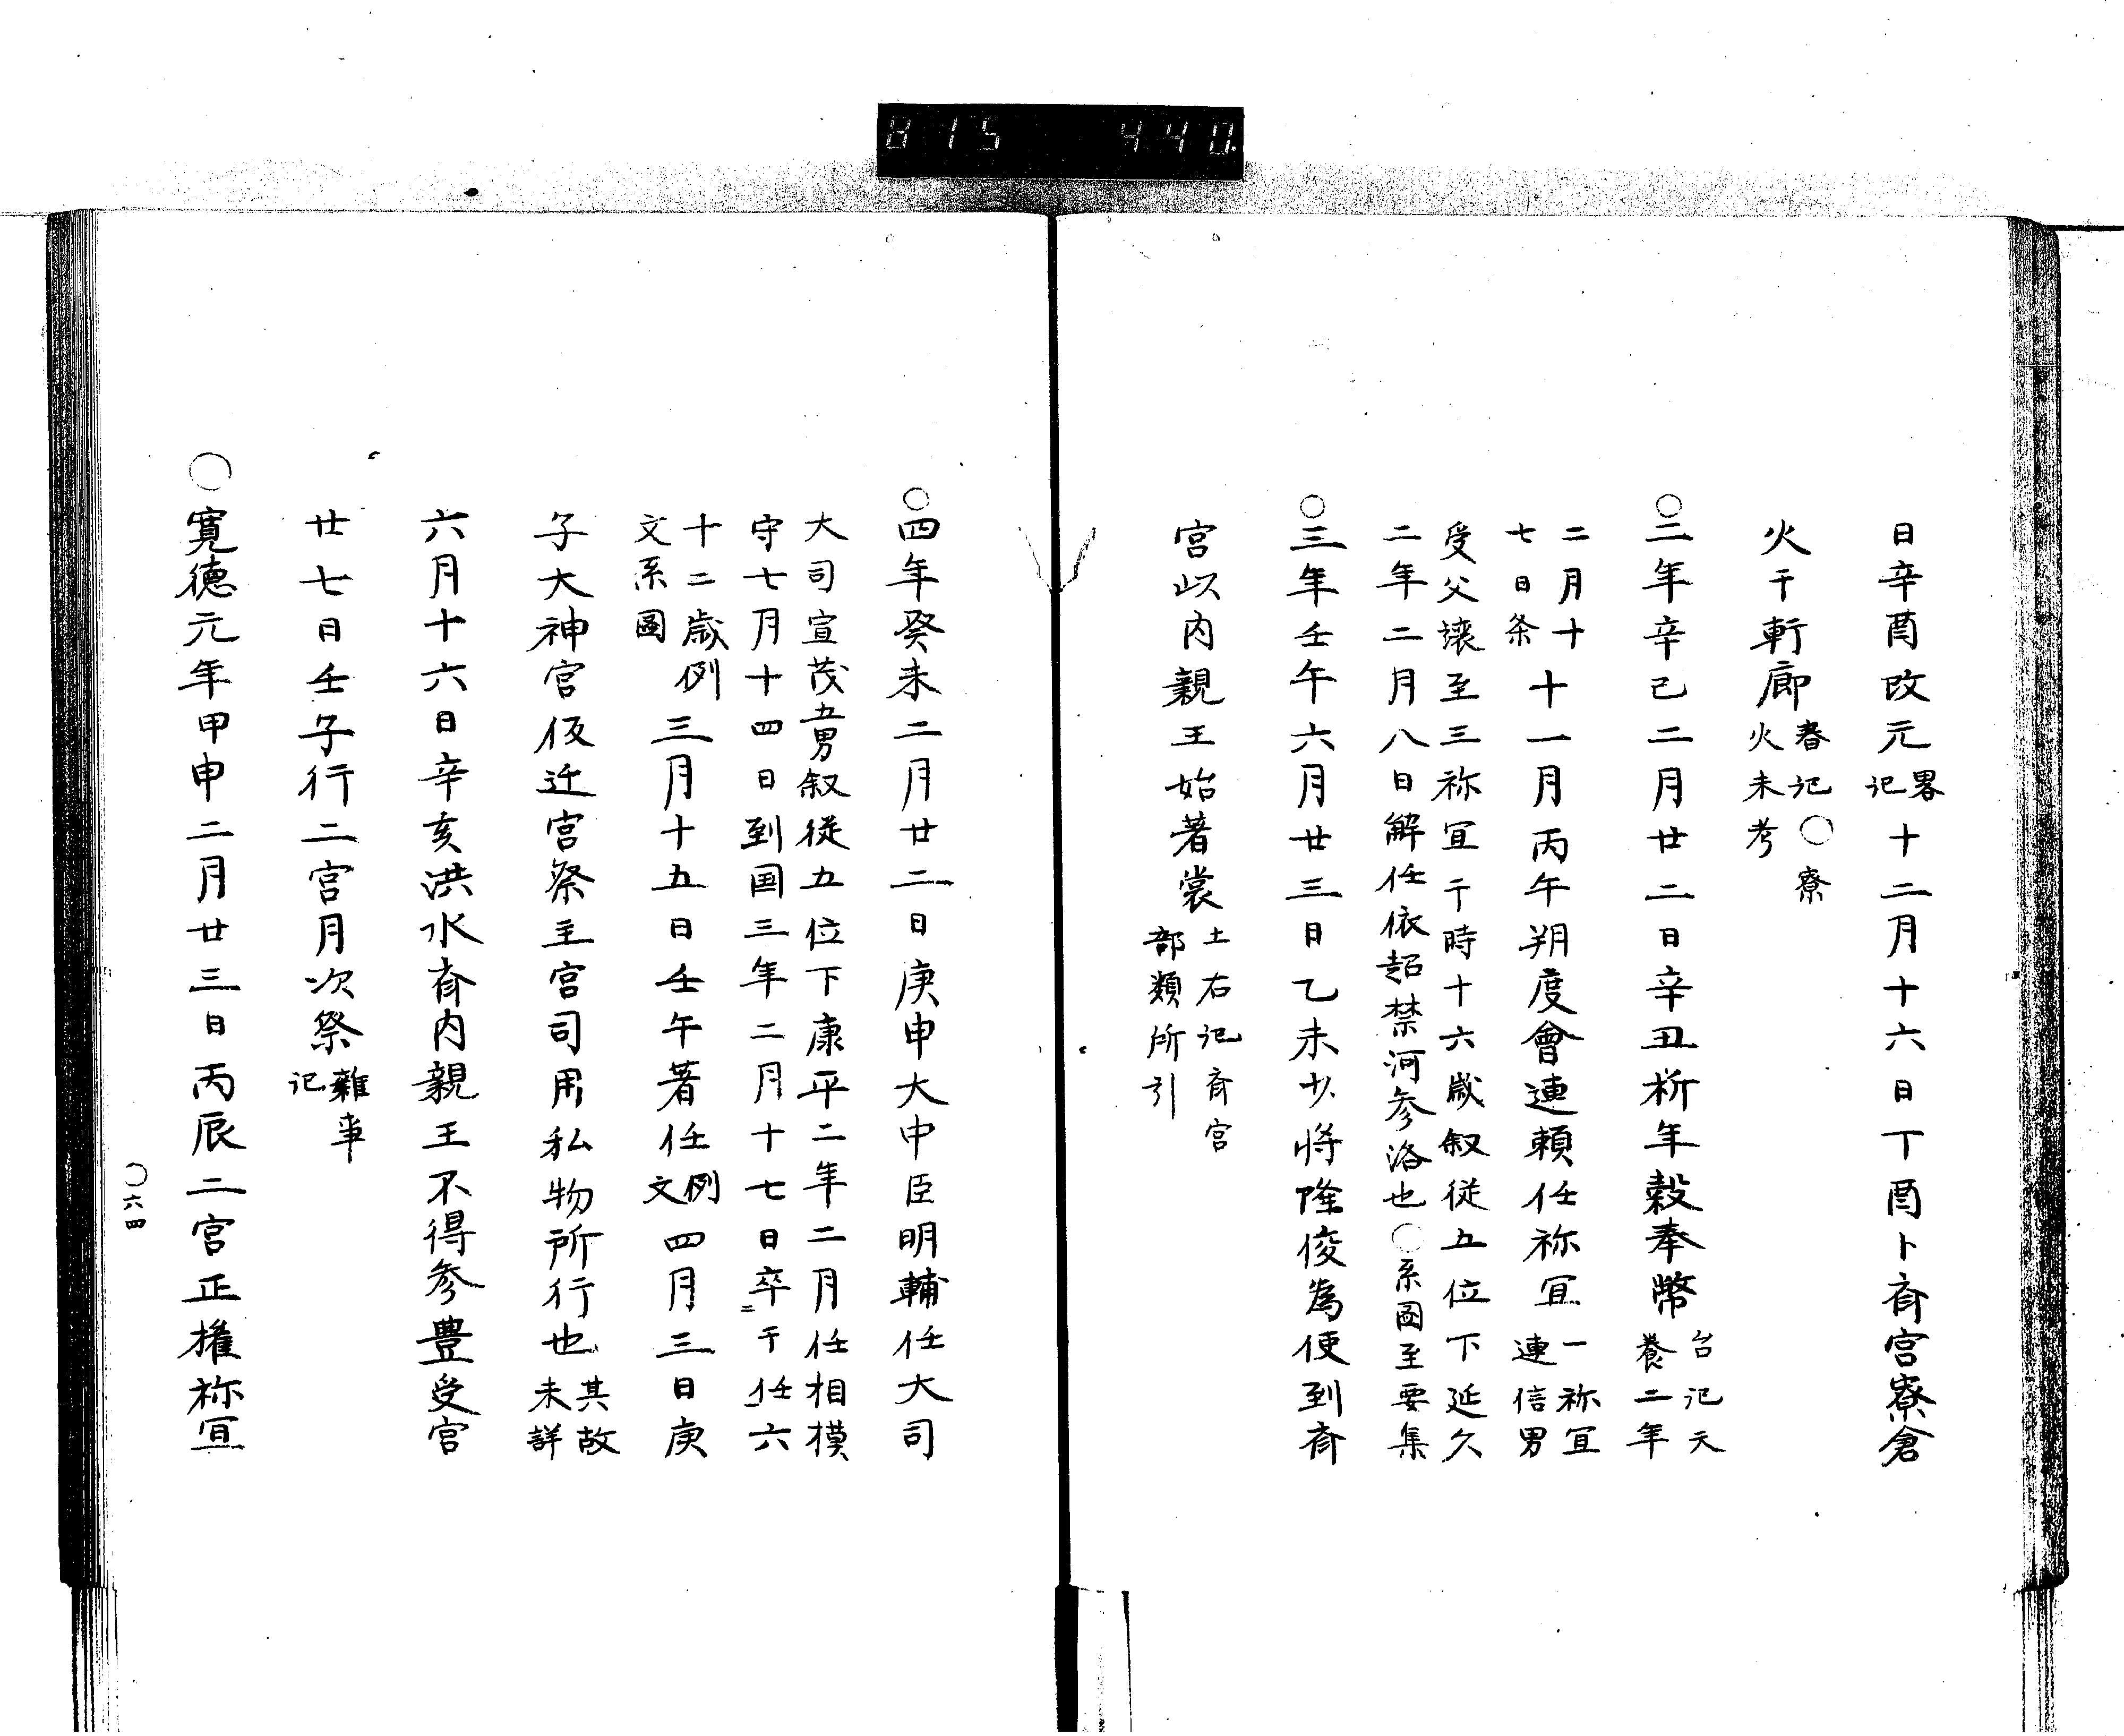 815 440.
日辛酉改元畧
記十二月十六日丁酉卜斉宮寮倉
火干軒廊春記〇寮
火未考
〇二年辛巳二月廿二日辛丑祈年穀奉幣台記天
養二年
二月十
七日条十一月丙午朔度會連頼任祢宜一祢宜
連信男
受父壌至三祢宜于時十六歳叙従五位下延久
二年二月八日解任依超禁河参洛也〇系圖至要集
〇三年壬午六月廿三日乙未少将隆俊為使到斉
宮以内親王始著裳土右記斉宮
部類所引
〇四年癸未二月廿二日庚申大中臣明輔任大司
大司宣茂五男叙従五位下康平二年二月任相模
守七月十四日到国三年二月十七日卒于任六
十二歳例
文系圖三月十五日壬午著任例
文四月三日庚
子大神宮仮迁宮祭主宮司用私物所行也其故
未詳
六月十六日辛亥洪水斉内親王不得参豊受宮
廿七日壬子行二宮月次祭雜事
記
〇寛德元年甲申二月廿三日丙辰二宮正權祢宜
〇六四